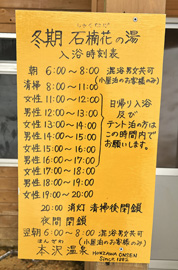 しゃくなげ
冬期 石楠花の湯
入浴時刻表
朝 6:00～8:00 混浴男女共可
(小屋泊のお客様のみ)
清掃 8:00～11:00
女性 11:00～12:00
男性 12:00～13:00
女性 13:00～14:00
男性 14:00～15:00
女性 15:00～16:00
男性 16:00～17:00
女性 17:00～18:00
男性 18:00～19:00
女性 19:00～20:00
日帰り入浴
及び
テント泊の方は
この時間内で
お願いします。
20:00 消灯 清掃後閉鎖
夜間 閉鎖
翌朝 6:00～8:00 混浴男女共可
(小屋泊のお客様のみ)
ほんざわ
本沢温泉 HONZAWA ONSEN
Since 1882